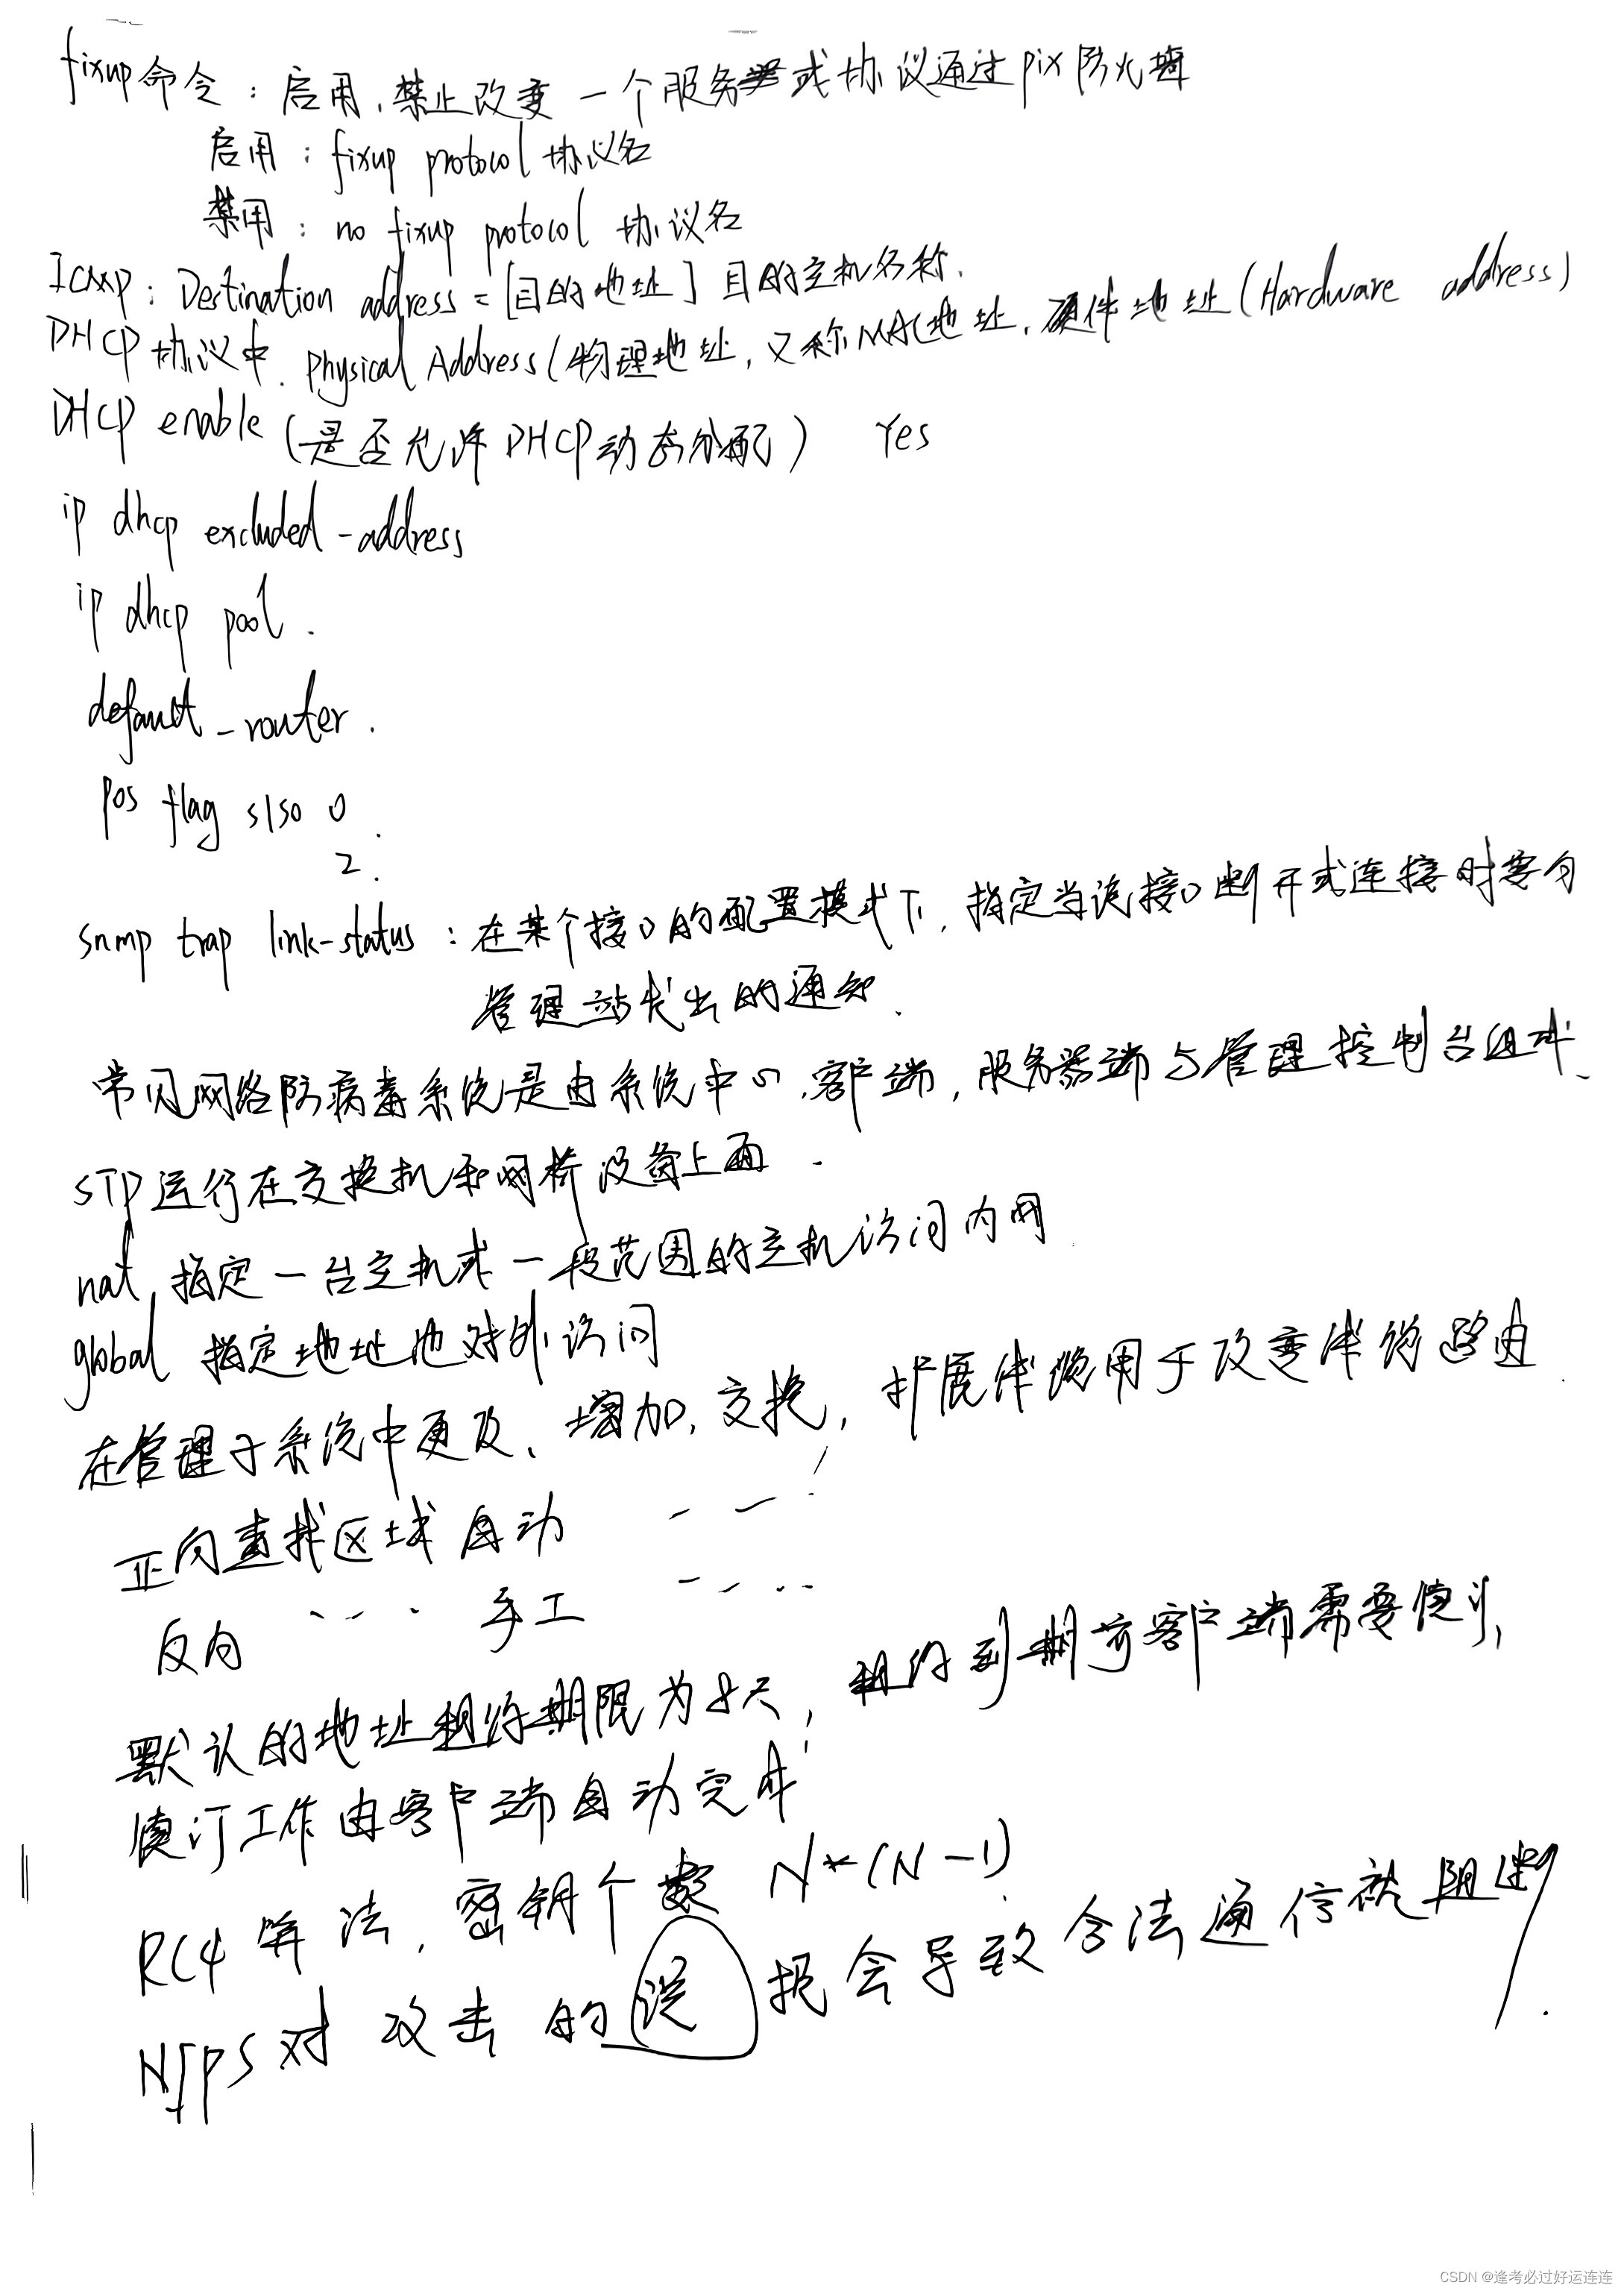 fixup命令:启用、禁止改变一个服务或协议通过pix防火墙
启用:fixup protocol 协议名
禁用:no fixup protocol 协议名
Icmp:Destination address=[目的地址]目的主机名称.
DHCP协议中.Physical Address(物理地址,又称MAC地址,硬件地址(Hardware address)
DHCP enable(是否允许DHCP动态分配) Yes
ip dhcp excluded-address
ip dhcp pool.
default-router.
pos flag s1s0 0.
2.
snmp trap link-status:在某个接口的配置模式下,指定当该接口断开或连接时要向
管理站发出的通知.
常见网络防病毒系统是由系统中心.客户端,服务器端与管理控制台组成.
STP运行在交换机和网桥设备上面.
nat 指定一台主机或一段范围的主机访问内网
global 指定地址池对外访问
在管理子系统中更改、增加,交换,扩展线缆用于改变线缆路由.
正向查找区域自动
反向 ---- 手工 ----
默认的地址租约期限为8天,租约到期前客户端需要续订,
续订工作由客户端自动完成
RC4算法,密钥个数 N*(N-1)
NIPS对攻击的误报会导致合法通信被阻断.
CSDN @逢考必过好运连连